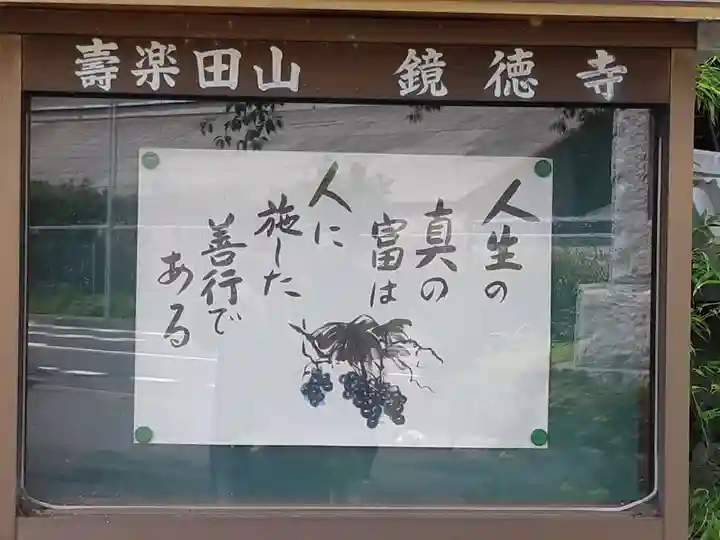 壽楽田山 鏡徳寺
人生の
真の
富は
人に
施した
善行で
ある